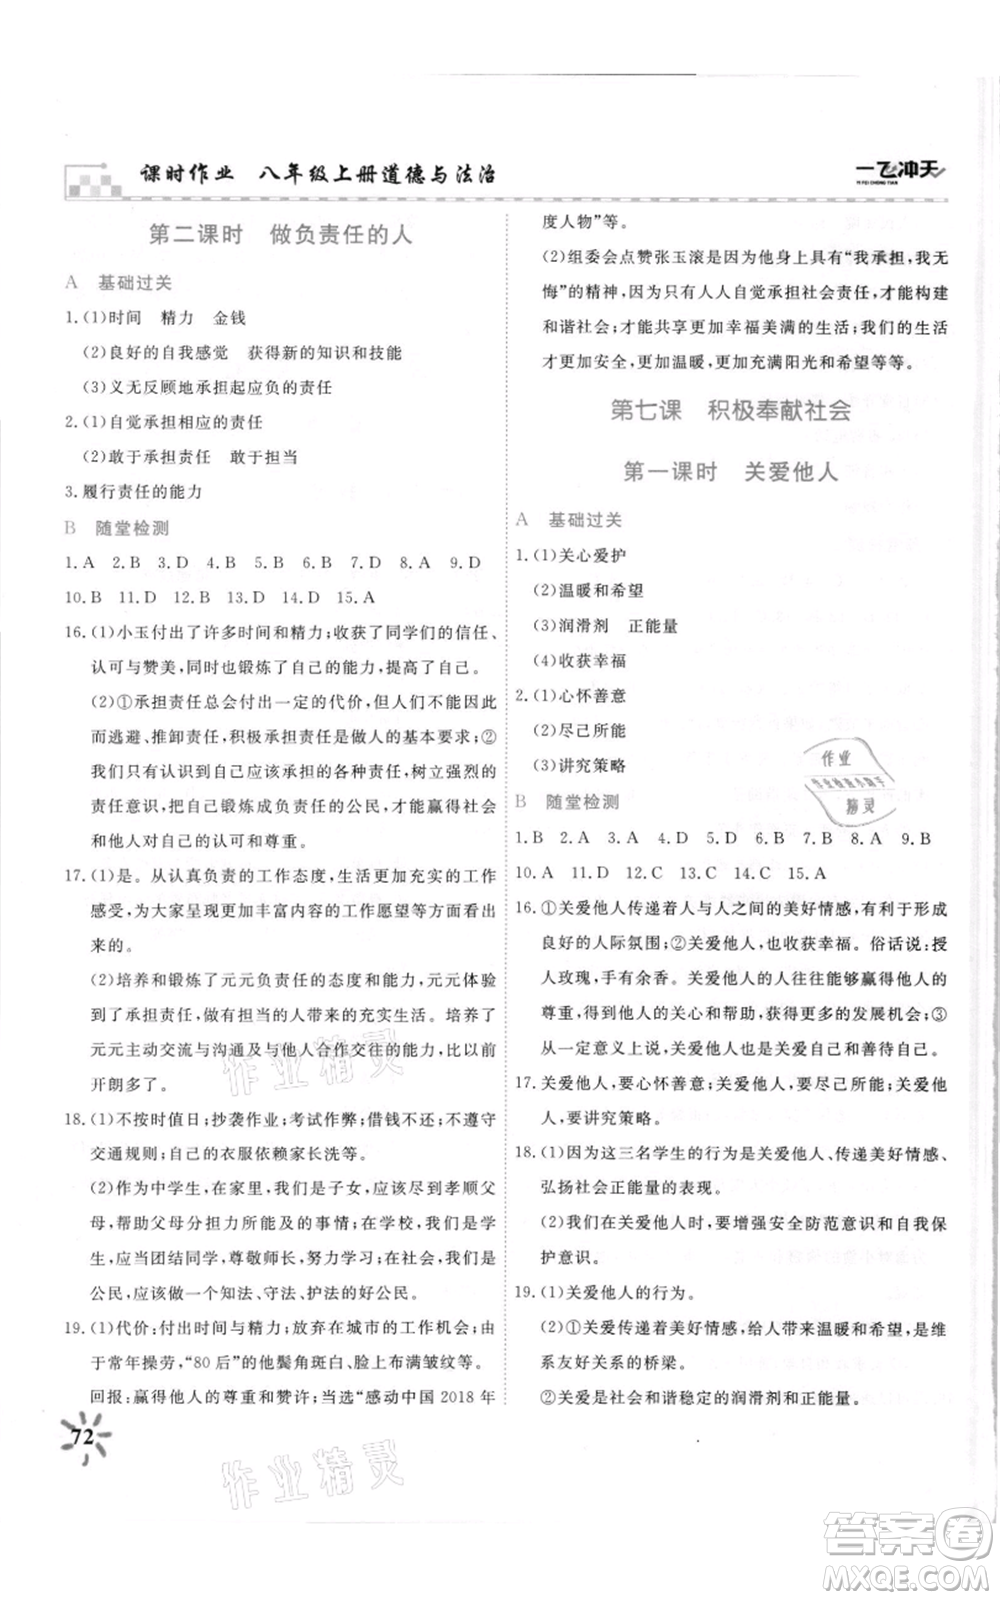 课时作业 八年级上册道德与法治
一飞冲天
YI FEI CHONG TIAN
第二课时 做负责任的人
A 基础过关
1.(1)时间 精力 金钱
(2)良好的自我感觉 获得新的知识和技能
(3)义无反顾地承担起应负的责任
2.(1)自觉承担相应的责任
(2)敢于承担责任 敢于担当
3.履行责任的能力
B 随堂检测
1.A 2.B 3.D 4.B 5.D 6.B 7.D 8.A 9.D
10.B 11.D 12.B 13.D 14.D 15.A
16.(1)小玉付出了许多时间和精力;收获了同学们的信任、
认可与赞美,同时也锻炼了自己的能力,提高了自己。
(2)①承担责任总会付出一定的代价,但人们不能因此
而逃避、推卸责任,积极承担责任是做人的基本要求;②
我们只有认识到自己应该承担的各种责任,树立强烈的
责任意识,把自己锻炼成负责任的公民,才能赢得社会
和他人对自己的认可和尊重。
17.(1)是。从认真负责的工作态度,生活更加充实的工作
感受,为大家呈现更加丰富内容的工作愿望等可以看出
来的。
(2)培养和锻炼了元元负责任的态度和能力,元元体验
到了承担责任,做有责任的人带来的充实生活。培养了
元元主动交流与沟通及与他人合作交往的能力,使其更
开朗多了。
18.(1)不按时值日;抄袭作业;考试作弊;借钱不还;不遵守
交通规则;自己的衣服依赖家长洗等。
(2)作为中学生,在家里,我们是子女,应该尽到孝顺父
母,帮助父母分担力所能及的事情;在学校,我们是学
生,应当团结同学,尊敬师长,努力学习;在社会,我们是
公民,应该做一个知法、守法、护法的好公民。
19.(1)代价:付出时间与精力;放弃在城市的工作机会;由
于常年操劳,“80后”的他鬓角斑白、脸上布满皱纹等。
回报:赢得他人的尊重和赞许;当选“感动中国2018年
72
度人物”等。
(2)组委会点赞张玉滚是因为他身上具有“我承担,我无
悔”的精神,因为只有人人自觉承担社会责任,才能构建
和谐社会;才能共享更加幸福美满的生活;我们的生活
才更加安全、更加温暖、更加充满阳光和希望等等。
第七课 积极奉献社会
第一课时 关爱他人
A 基础过关
1.(1)关心爱护
(2)温暖和希望
(3)润滑剂 正能量
(4)收获幸福
2.(1)心怀善意
(2)尽己所能
(3)讲究策略
B 随堂检测
1.B 2.A 3.A 4.D 5.D 6.B 7.B 8.A 9.B
10.A 11.D 12.C 13.C 14.C 15.A
16.①关爱他人传递着人与人之间的美好情感,有利于形成
良好的人际氛围;②关爱他人,也收获幸福。俗话说:授
人玫瑰,手有余香。关爱他人的人往往能够赢得他人的
尊重,得到他人的关心和帮助,获得更多的发展机会;③
从一定意义上说,关爱他人就是关爱和善待自己。
17.关爱他人,要心怀善意;关爱他人,要尽己所能;关爱他
人,要讲究策略。
18.(1)因为这三名学生的行为是关爱他人、传递美好情感、
弘扬社会正能量的表现。
(2)我们在关爱他人时,要增强安全防范意识和自我保
护意识。
19.(1)关爱他人的行为。
(2)①关爱传递着美好情感,给人带来温暖和希望,是维
系友好关系的桥梁。
②关爱是社会和谐稳定的润滑剂和正能量。
作业
精灵
作业精灵
作业精灵
答案卷
MXQE.COM